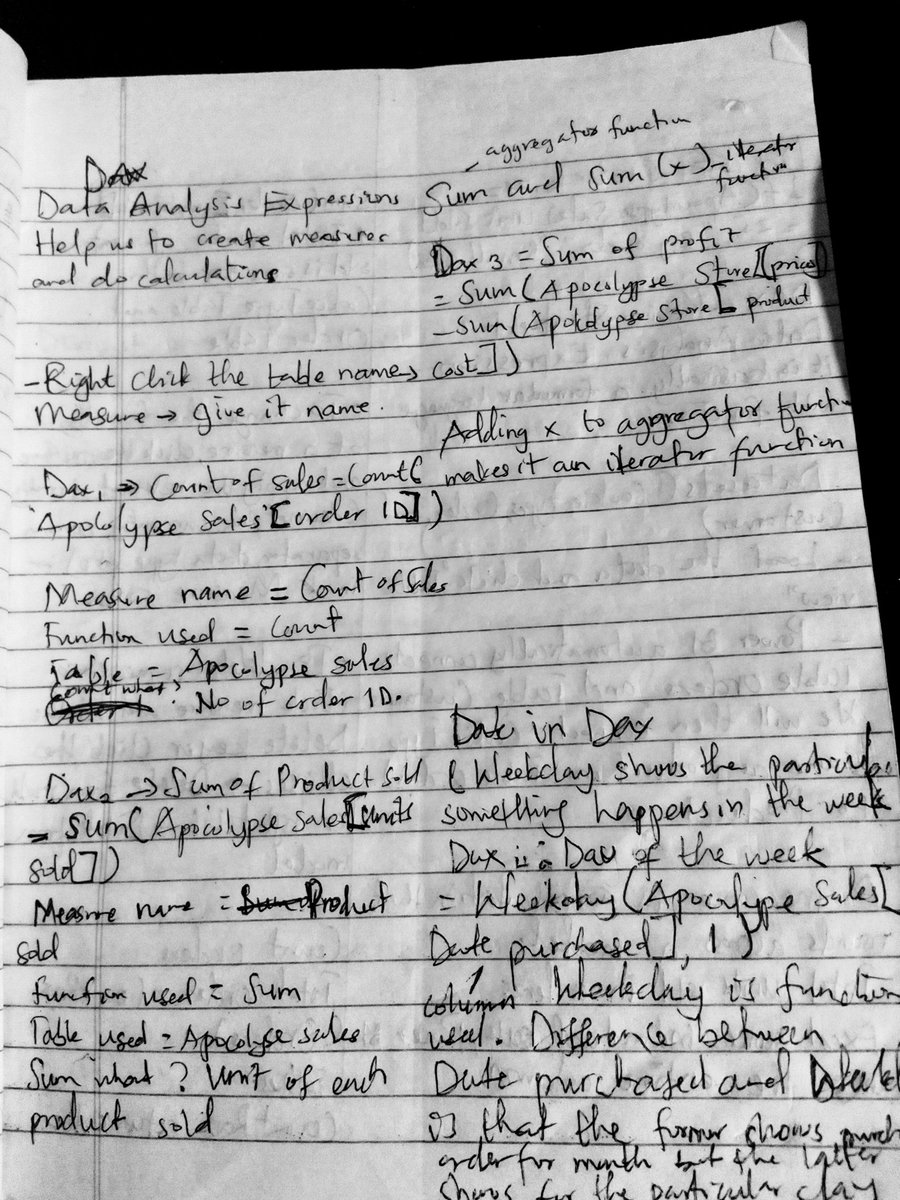 Dax
Data Analysis Expressions
Help us to create measures
and do calculations
-Right click the table names
Measure → give it name.
Dax1 → Count of sales = Count(
'Apocolypse Sales'[order ID])
Measure name = Count of Sales
Function used = Count
Table = Apocalypse sales
Count what? No of order ID.
Dax2 → Sum of Product sold
= sum(Apocolypse Sales[units
sold])
Measure name = Product
sold
function used = Sum
Table used = Apocalypse sales
Sum what? Unit of each
product sold
aggregator function
Sum and Sum(x) - iterator
function
Dax 3 = Sum of profit
= Sum(Apocolypse Store[price]
- Sum(Apokolypse Store[product
cost])
Adding x to aggregator
makes it an iterator function
Date in Dax
(Weekday shows the
something happens in the week
Dax is = Day of the week
= Weekday(Apocalypse Sales[
Date purchased], 1)
column Weekday is function
used. Difference between
Date purchased and
is that the former shows
order for month but the latter
shows for the particular day